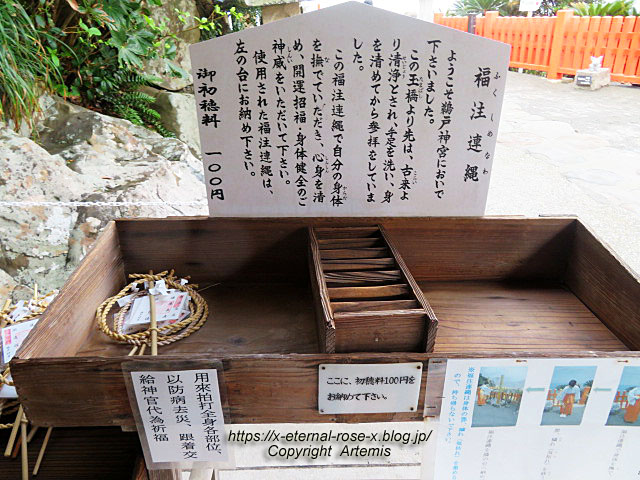 福注連縄
ふくしめなわ
ようこそ鵜戸神宮においで
下さいました。
この玉橋より先は、古来よ
り清浄とされ、手足を洗い、身
を清めてから参拝をしていま
した。
この福注連縄で自分の身体
を撫でていただき、心身を清
め、開運招福・身体健全のご
神威をいただいて下さい。
使用された福注連縄は、
左の台にお納め下さい。
御初穂料 一〇〇円
ここに、初穂料100円を
お納めて下さい。
用來拍打全身各部位、
以防病去災、跟着交
給神官代為祈福
https://x-eternal-rose-x.blog.jp/
Copyright Artemis